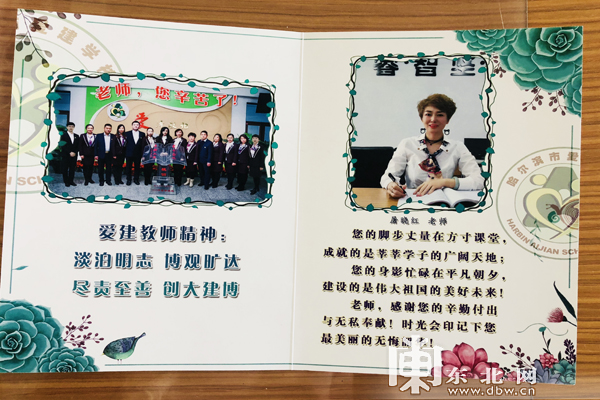 老师，您辛苦了！
爱建教师精神：
淡泊明志 博观旷达
尽责至善 创大建博
睿智坚
屠晓红 老师
您的脚步丈量在方寸课堂，
成就的是莘莘学子的广阔天地；
您的身影忙碌在平凡朝夕，
建设的是伟大祖国的美好未来！
老师，感谢您的辛勤付出
与无私奉献！时光会印记下您
最美丽的无悔
哈尔滨市爱
HARBIN AIJIAN SCH
东北网
www.dbw.cn